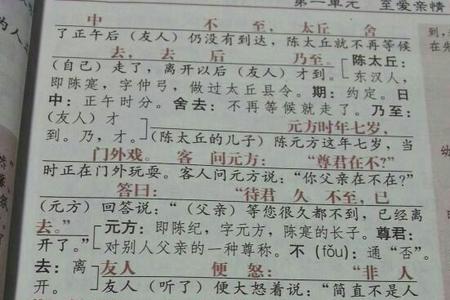 第一单元 至爱亲情
中 不至，太丘 舍
了正午后（友人）仍没有到达，陈太丘就不再等候
去，去 后 乃至。 陈太丘：
（自己）走了，离开以后（友人）才到。 东汉人，
即陈寔，字仲弓，做过太丘县令。期：约定。日
中：正午时分。舍去：不再等候就走了。乃至：
（友人）才 元方时年七岁，
到。乃，才。 （陈太丘的儿子）陈元方这年七岁，当
门外戏。 客 问元方： “尊君在不？”
时正在门外玩耍。客人问元方说：“你父亲在不在？”
答曰： “待君 久 不至，已
（元方）回答说：“（父亲）等您很久都不到，已经离
去。” 元方：即陈纪，字元方，陈寔的长子。尊君：
开了。” 对别人父亲的一种尊称。不（fǒu）：通“否”。
去：离 友人 便 怒： “非 人
开。 友人（听了）便大怒着说：“简直不是人